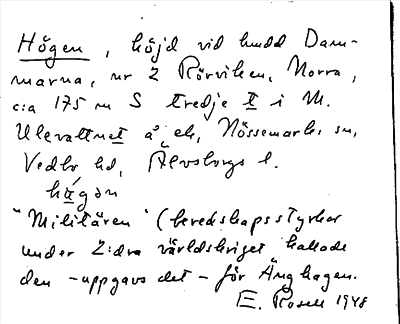 Högen, höjd vid hudd Dam-
marna, nr 2 Rörviken, Norra,
c:a 175 m S tredje t i M.
Ulevattnet å ek, Nössemarks sn,
Vedbo hd, Älvsborgs l.
hǻgən
"Militären" (beredskapsstyrkor
under 2:dra världskriget kallade
den -uppgavs det - för Änghagen.
E. Rosell 1948